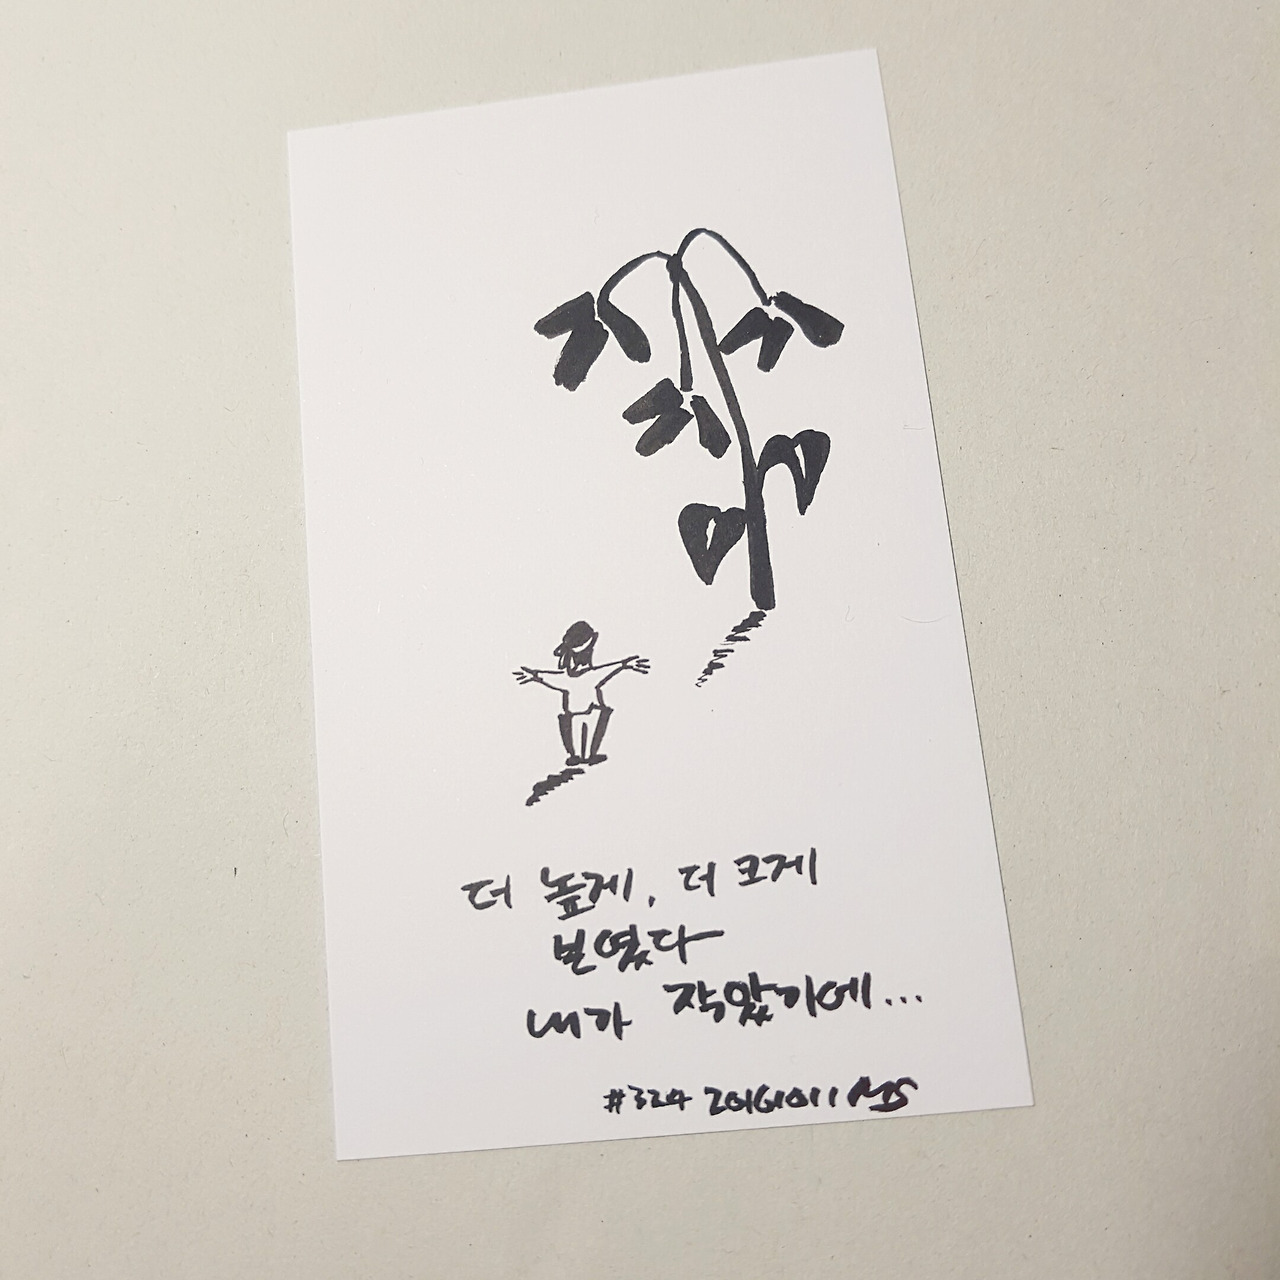 더 높게, 더 크게
보였다
내가 작았기에...
#324 20161011 MS